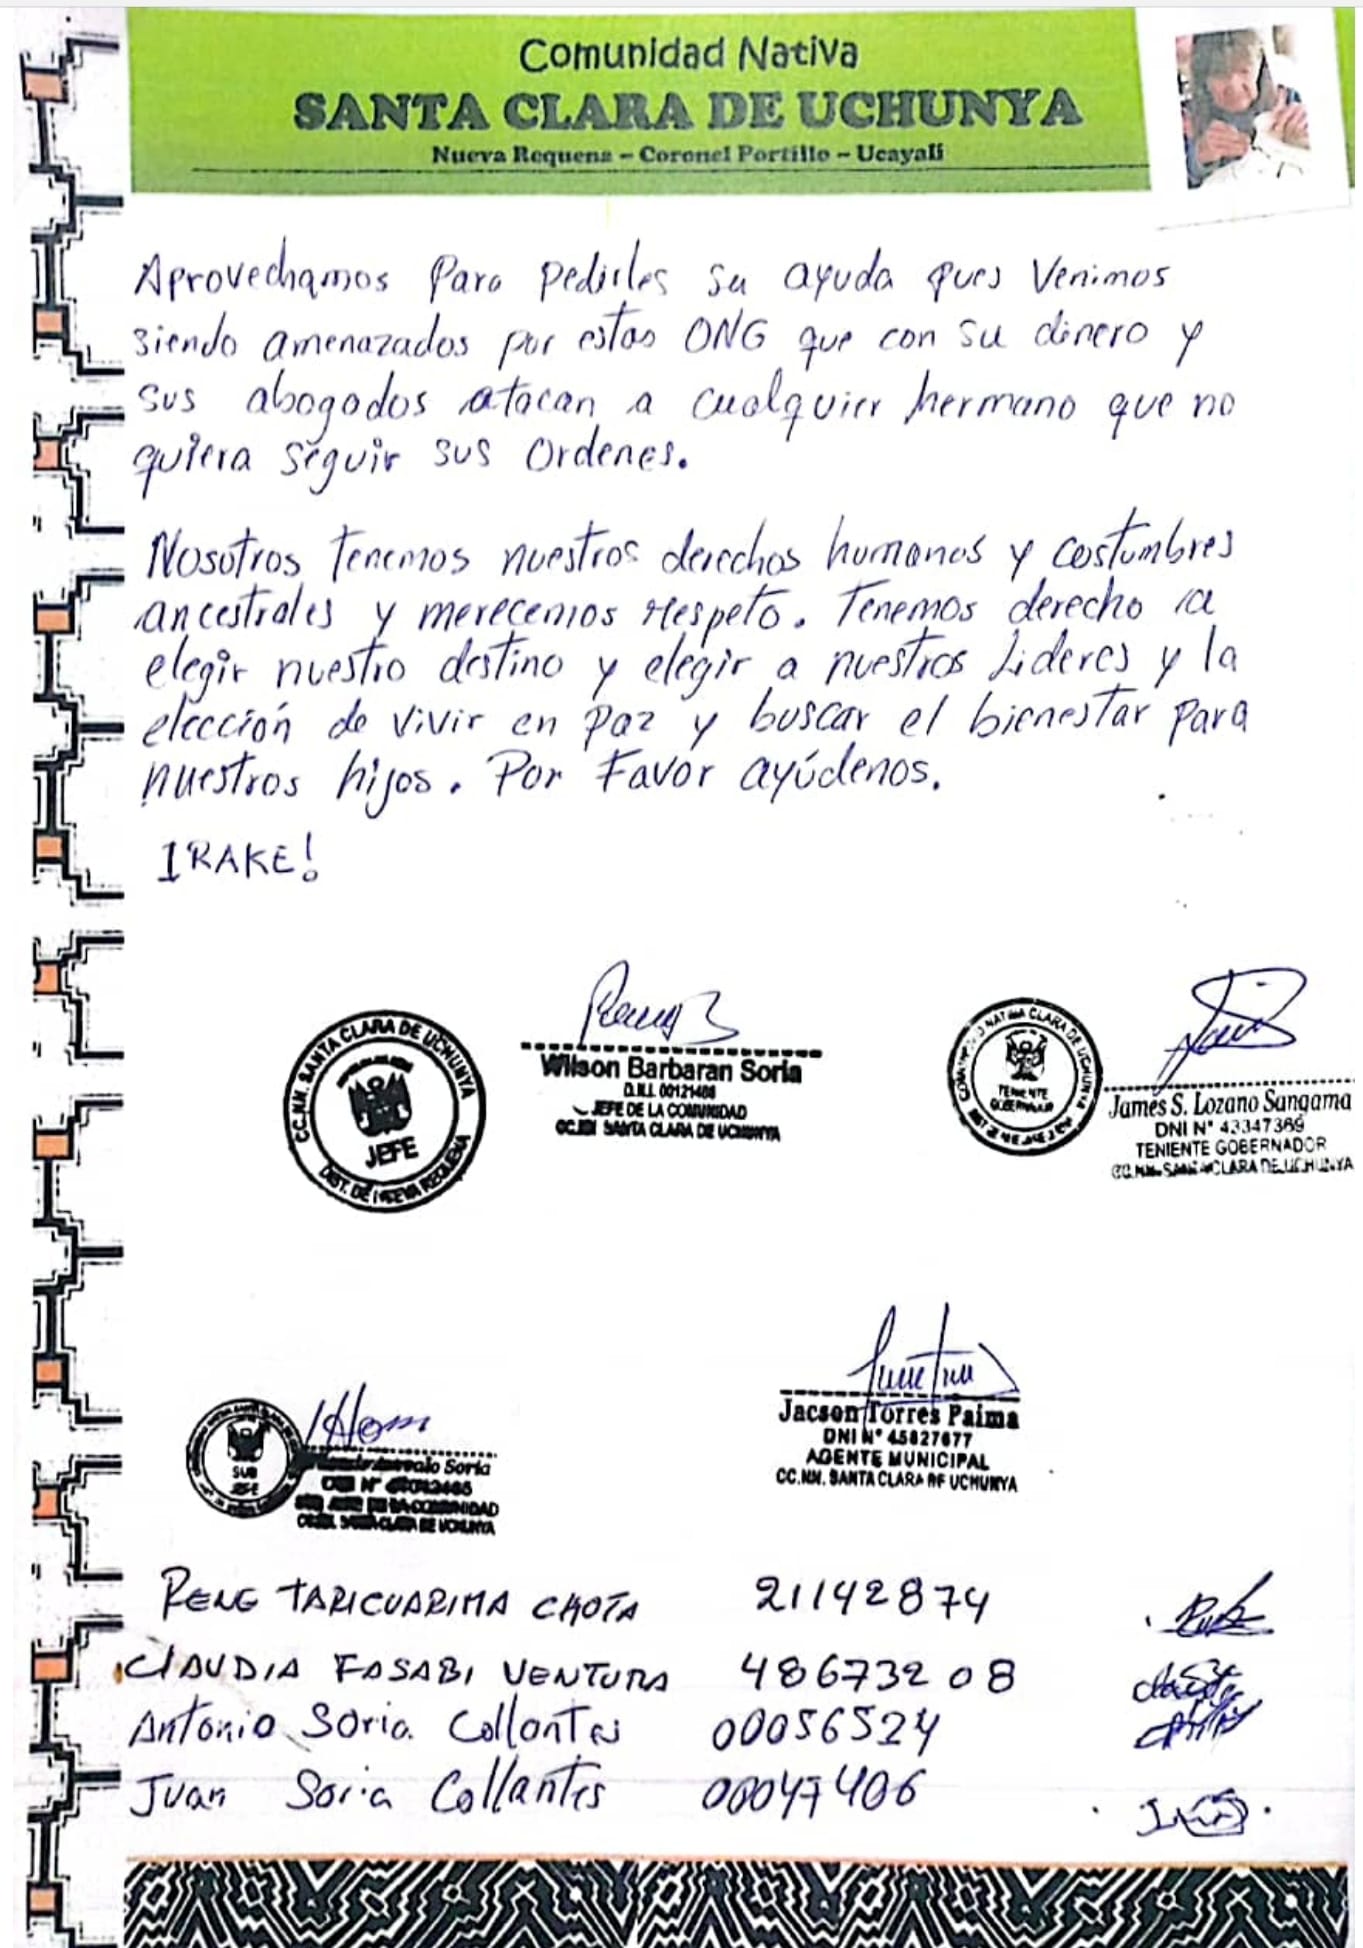 Comunidad Nativa
SANTA CLARA DE UCHUNYA
Nueva Requena – Coronel Portillo – Ucayali
Aprovechamos para pedirles su ayuda pues Venimos
siendo amenazados por estas ONG que con su dinero y
sus abogados atacan a cualquier hermano que no
quiera seguir sus Ordenes.
Nosotros tenemos nuestros derechos humanos y costumbres
ancestrales y merecemos respeto. Tenemos derecho a
elegir nuestro destino y elegir a nuestros Lideres y la
elección de vivir en paz y buscar el bienestar para
nuestros hijos. Por Favor ayúdenos.
IRAKE!
CC.NN. SANTA CLARA DE UCHUNYA
JEFE
DIST. DE NUEVA REQUENA
Wilson Barbaran Soria
D.N.I. 00121488
JEFE DE LA COMUNIDAD
CC.NN SANTA CLARA DE UCHUNYA
NATIVA CLARA DE UCHUNYA
TENIENTE
GOBERNADOR
James S. Lozano Sangama
DNI N° 43347369
TENIENTE GOBERNADOR
CC.NN. SANTA CLARA DE UCHUNYA
SUB
JEFE
Soria
DNI N°
SUB JEFE DE LA COMUNIDAD
CC.NN. SANTA CLARA DE UCHUNYA
Jacson Torres Paima
DNI N° 45827677
AGENTE MUNICIPAL
CC.NN. SANTA CLARA DE UCHUNYA
TARICUARIMA CHOTA 21142874
CLAUDIA FASABI VENTURA 48673208
Antonio Soria Collantes 00056524
Juan Soria Collantes 00047406